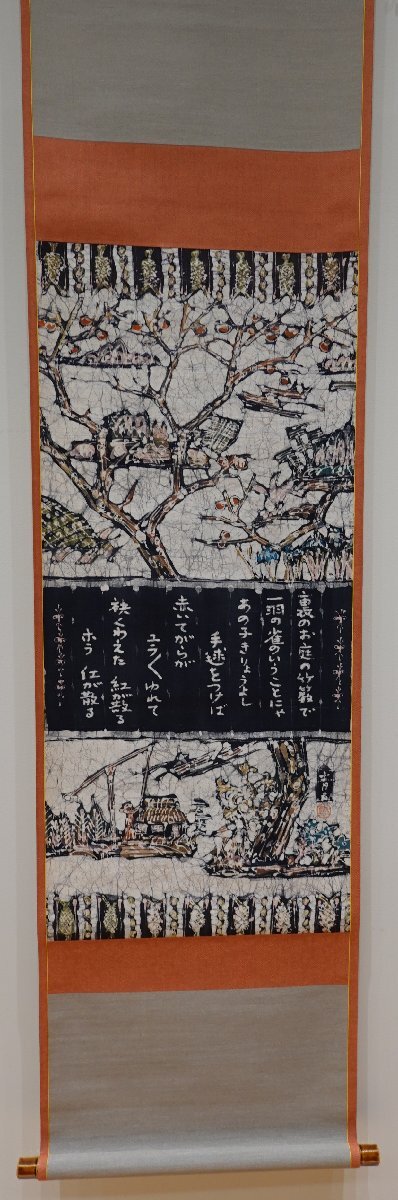 裏のお庭の竹藪で
一羽の雀のいうことにゃ
あの子きりょうよし
手毬をつけば
赤いてがらが
ユラ〱ゆれて
袂くわえた 紅が散る
ホラ 紅が散る